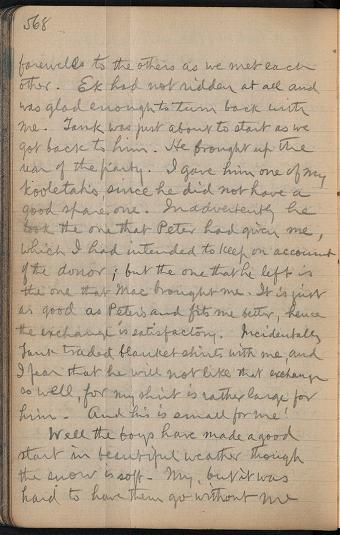 568
farewells to the others as we met each
other. Ek had not ridden at all and
was glad enough to turn back with
me. Tank was just about to start as we
got back to him. He brought up the
rear of the party. I gave him one of my
kooletahs since he did not have a
good spare one. Inadvertently he
took the one that Peter had given me,
which I had intended to keep on account
of the donor; but the one that he left is
the one that Mac brought me. It is just
as good as Peter's and fits me better, hence
the exchange is satisfactory. Incidentally
Tank traded blanket shirts with me and
I fear that he will not like that exchange
so well, for my shirt is rather large for
him. And his is small for me!
Well the boys have made a good
start in beautiful weather though
the snow is soft. My, but it was
hard to have them go without me